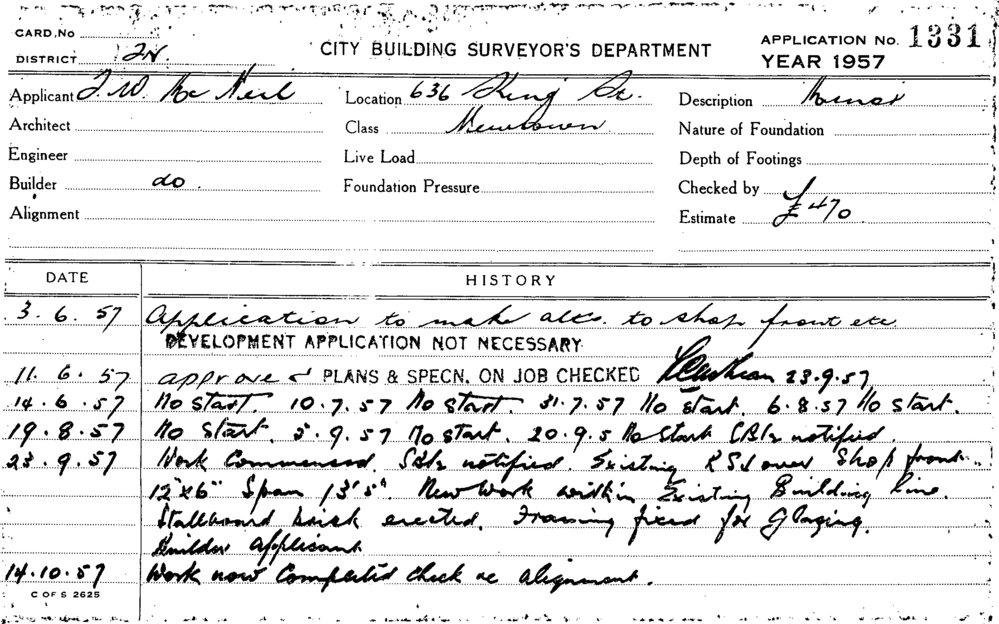 CARD. No
DISTRICT
CITY BUILDING SURVEYOR'S DEPARTMENT
APPLICATION No. 1331
YEAR 1957
Applicant J. W. Mc Neil
Location 636 King St.
Description Minor
Architect
Class Newtown
Nature of Foundation
Engineer
Live Load
Depth of Footings
Builder do.
Foundation Pressure
Checked by
Alignment
Estimate £470
DATE HISTORY
3. 6. 57 Application to make alts. to shop front etc
DEVELOPMENT APPLICATION NOT NECESSARY
11. 6. 57 approved PLANS & SPECN. ON JOB CHECKED 23.9.57
14. 6. 57 No start. 10.7.57 No start. 31.7.57 No start. 6.8.57 No start.
19. 8. 57 No start. 5.9.57 No start. 20.9.5 No Start notified.
23. 9. 57 Work Commenced. notified. Existing RSJ over Shop front
12"x6" Span 13'5". New work within Existing Building line.
Stallboard brick erected. Framing fixed for Glazing.
Builder applicant
14.10.57 Work now Completed check re alignment.
C OF S 2625